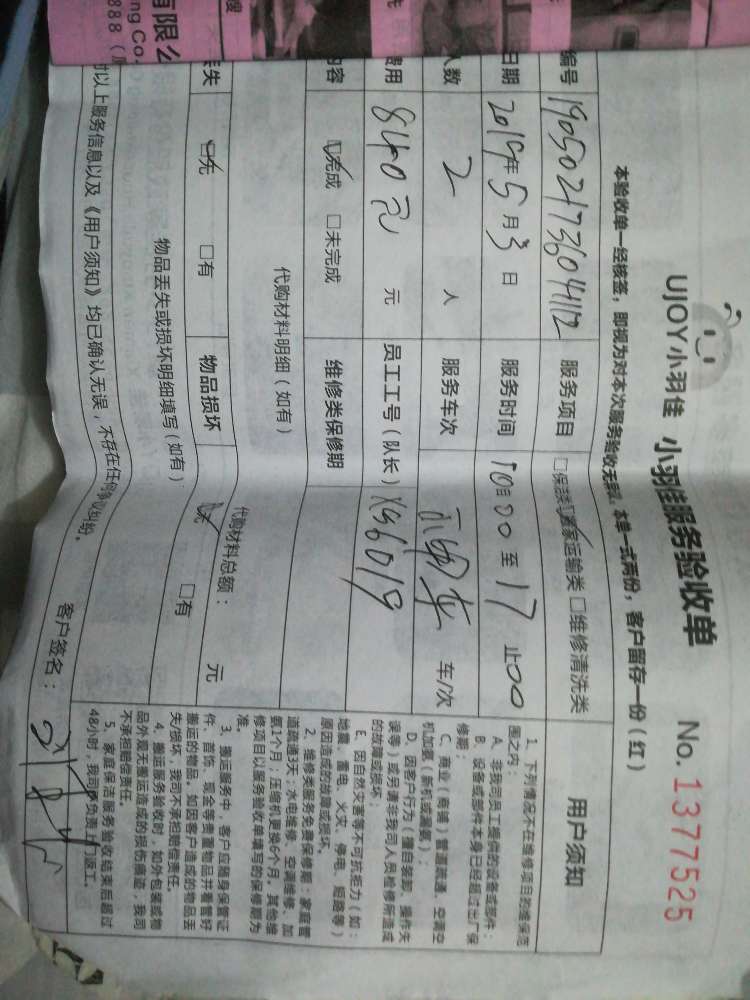 UJOY小羽佳 小羽佳服务验收单 No. 1377525
本验收单一经核签，即视为对本次服务验收无误。本单一式两份，客户留存一份（红）
编号 服务项目 □保洁类 ☑搬家运输类 □维修清洗类
日期 2019年5月3日 服务时间 10:00 至 17 止00
人数 2 人 服务车次 车/次
费用 840元 元 员工工号（队长） XS6019
内容 ☑完成 □未完成 维修类保修期
代购材料明细（如有）
代购材料总额： 元
丢失 ☑无 □有 物品损坏 ☑无 □有
物品丢失或损坏明细填写（如有）
对以上服务信息以及《用户须知》均已确认无误，不存在任何争议纠纷。
客户签名：
用户须知
1. 下列情况不在维修项目的维保范
围之内：
A、非我司员工提供的设备或部件；
B、设备或部件本身已经超过出厂保
修期；
C、商业（商铺）管道疏通、空调空
机加氨（新机或漏氨）；
D、因客户行为（擅自装卸、操作失
误等）或另请非我司人员检修所造成
的故障或损坏；
E、因自然灾害等不可抗拒力（如：
地震、雷电、火灾、停电、短路等）
原因造成的故障或损坏。
2. 维修类服务免费保修期：家庭管
道疏通3天；水电维修、空调维修、加
氨1个月；压缩机更换6个月。其他维
修项目以服务验收单填写的保修期为
准。
3. 搬运服务中，客户应随身保管证
件、首饰、现金等贵重物品并看管好
搬运的物品。如因客户造成的物品丢
失/损坏，我司不承担赔偿责任。
4. 搬运服务验收时，如外包装或物
品外观无搬运造成的损伤痕迹，我司
不承担赔偿责任。
5. 家庭保洁服务验收结束后超过
48小时，我司不负责上门返工。
有限公
ng Co.
888